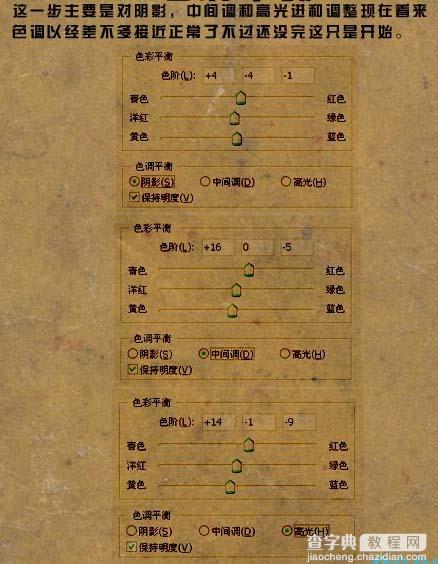 这一步主要是对阴影，中间调和高光进和调整现在看来
色调以经差不多接近正常了不过还没完这只是开始。
色彩平衡
色阶(L): +4 -4 -1
青色 红色
洋红 绿色
黄色 蓝色
色调平衡
阴影(S) 中间调(D) 高光(H)
保持明度(V)
色彩平衡
色阶(L): +16 0 -5
青色 红色
洋红 绿色
黄色 蓝色
色调平衡
阴影(S) 中间调(D) 高光(H)
保持明度(V)
色彩平衡
色阶(L): +14 -1 -9
青色 红色
洋红 绿色
黄色 蓝色
色调平衡
阴影(S) 中间调(D) 高光(H)
保持明度(V)
查字典 教程网
jiaocheng.chazidian.com